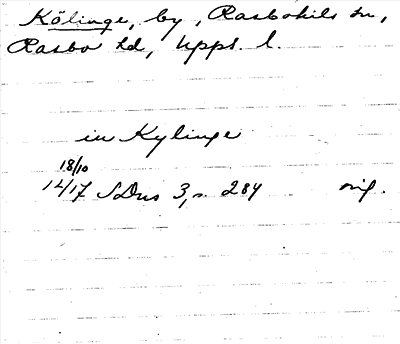 Kölinge, by, Rasbokils sn,
Rasbo hd, Uppl. l.
in Kylinge
18/10
1417 SDns 3, s. 284 orig.